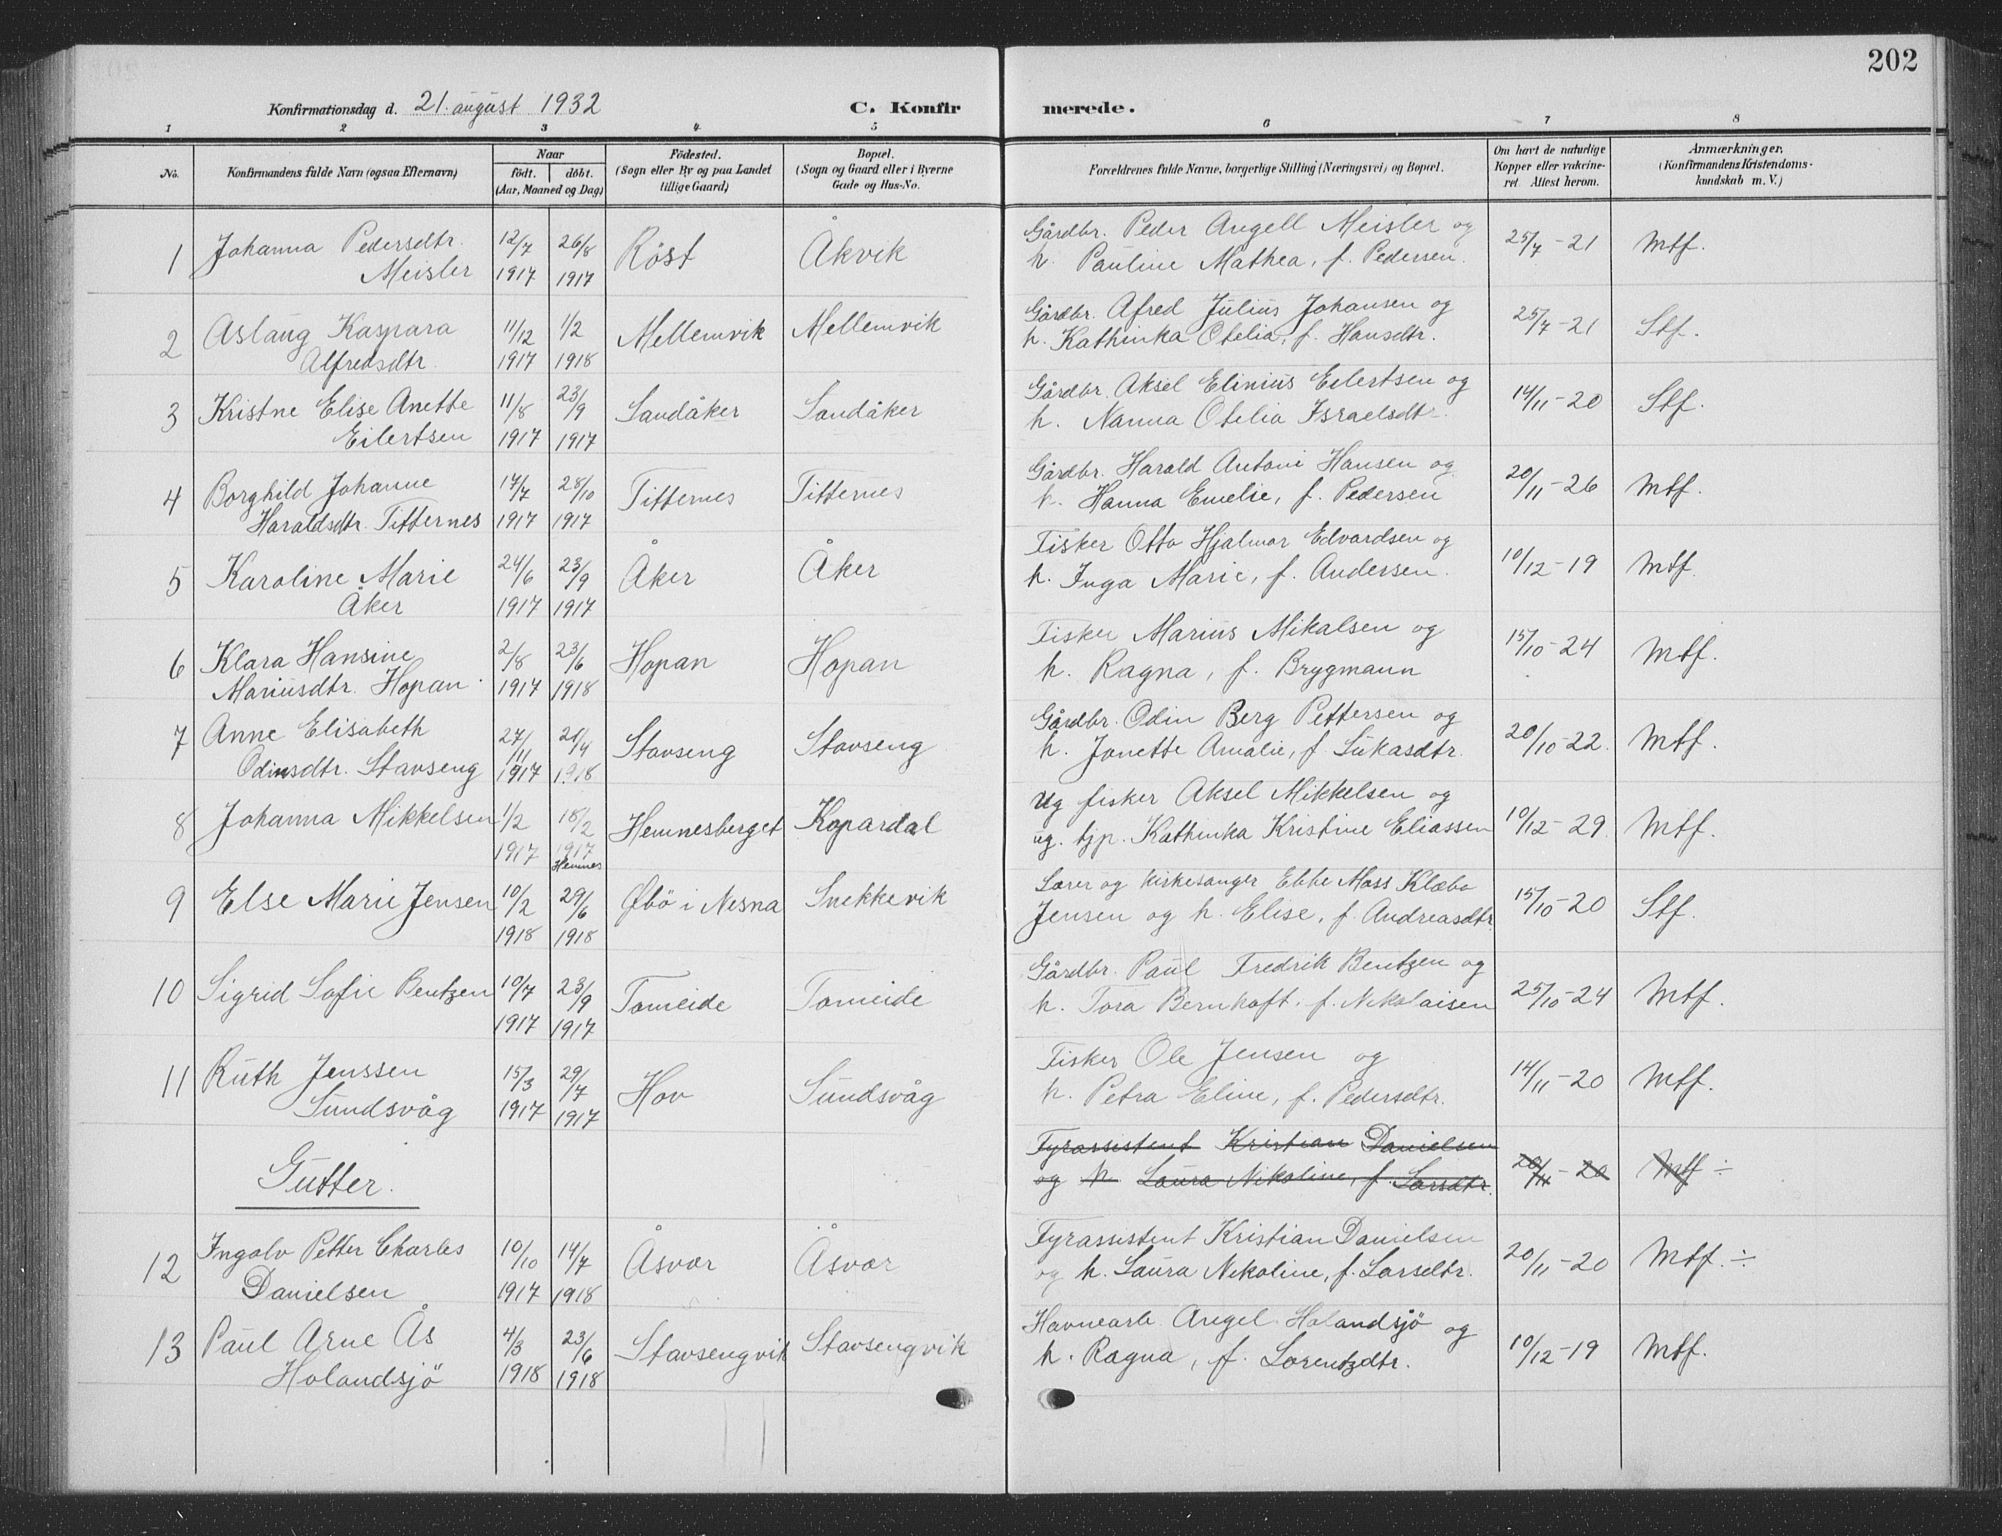 202
Konfirmationsdag d. 21. august 1932 C. Konfirmerede.
1 2 3 4 5 6 7 8
No. Konfirmandens fulde Navn (ogsaa Efternavn) Naar født. døbt. (Aar, Maaned og Dag) Fødested. (Sogn eller By og paa Landet tillige Gaard) Bopæl. (Sogn og Gaard eller i Byerne Gade og Hus-No. Forældrenes fulde Navne, borgerlige Stilling (Næringsvei) og Bopæl. Om havt de naturlige Kopper eller vakcineret. Attest herom. Anmærkninger. (Konfirmandens Kristendomskundskab m. V.)
1 Johanna Pedersdtr. 12/7 26/8 Røst Åkvik Gårdbr. Peder Angell Meisler og 25/7-21 Mtf.
Meisler 1917 1917 h. Pauline Mathea, f. Pedersen.
2 Aslaug Kaspara 11/12 1/2 Mellemvik Mellemvik Gårdbr. Afred Julius Johansen og 25/7-21 Stf.
Alfredsdtr. 1917 1918 h. Kathinka Otelia, f. Hansdtr.
3 Kristne Elise Anette 11/8 23/9 Sandåker Sandåker Gårdbr. Aksel Elinius Eilertsen og 14/11-20 Stf.
Eilertsen 1917 1917 h. Nanna Otelia Israelsdtr.
4 Borghild Johanne 17/7 28/10 Titternes Titternes Gårdbr. Harald Antoni Hansen og 20/11-26 Mtf.
Haraldsdtr. Titternes 1917 1917 h. Hanna Emelie, f. Pedersen
5 Karoline Marie 24/6 23/9 Åker Åker Fisker Otto Hjalmar Edvardsen og 10/12-19 Mtf.
Åker 1917 1917 h. Inga Marie, f. Andersen.
6 Klara Hansine 2/8 23/6 Hopan Hopan Fisker Marius Mikalsen og 15/10-24 Mtf.
Mariusdtr. Hopan. 1917 1918 h. Ragna, f. Brygmann
7 Anne Elisabeth 27/11 21/4 Stavseng Stavseng Gårdbr. Odin Berg Pettersen og 20/10-22. Mtf.
Odinsdtr. Stavseng 1917 1918 h. Janette Amalie, f. Lukasdtr.
8 Johanna Mikkelsen 1/2 18/2 Hemnesberget Kopardal Ug fisker Aksel Mikkelsen og 10/12-29 Mtf.
1917 1917 Hemnes ug. tjp. Kathinka Kristine Eliassen
9 Else Marie Jensen 10/2 29/6 Øbø i Nesna Snekkevik Lærer og kirkesanger Ebbe Moss Klæbo 15/10-20 Stf.
1918 1918 Jensen og h. Elise, f. Andreasdtr
10 Sigrid Sofie Bentzen 10/7 23/9 Tomeide Tomeide Gårdbr. Paul Fredrik Bentzen og 25/10-24 Mtf.
1917 1917 h. Tora Bernhoft. f. Nikolaisen
11 Ruth Jenssen 15/3 29/7 Hov Sundsvåg Fisker Ole Jensen og 14/11-20 Mtf.
Sundsvåg 1917 1917 h. Petra Eline, f. Pedersdtr.
Gutter. Fyrassistent Kristian Danielsen 20/11-20 Mtf ÷
og h Laura Nikoline, f. Larsdtr.
12 Ingolv Petter Charles 10/10 14/7 Åsvær Åsvær Fyrassistent Kristian Danielsen 20/11-20 Mtf. ÷
Danielsen 1917 1918 og h. Laura Nikoline, f. Larsdtr.
13 Paul Arne Ås 4/3 23/6 Stavsengvik Stavsengvik Havnearb. Angel Holandsjö og 10/12-19 Mtf.
Holandsjö 1918 1918 h. Ragna, f. Lorentzdtr.